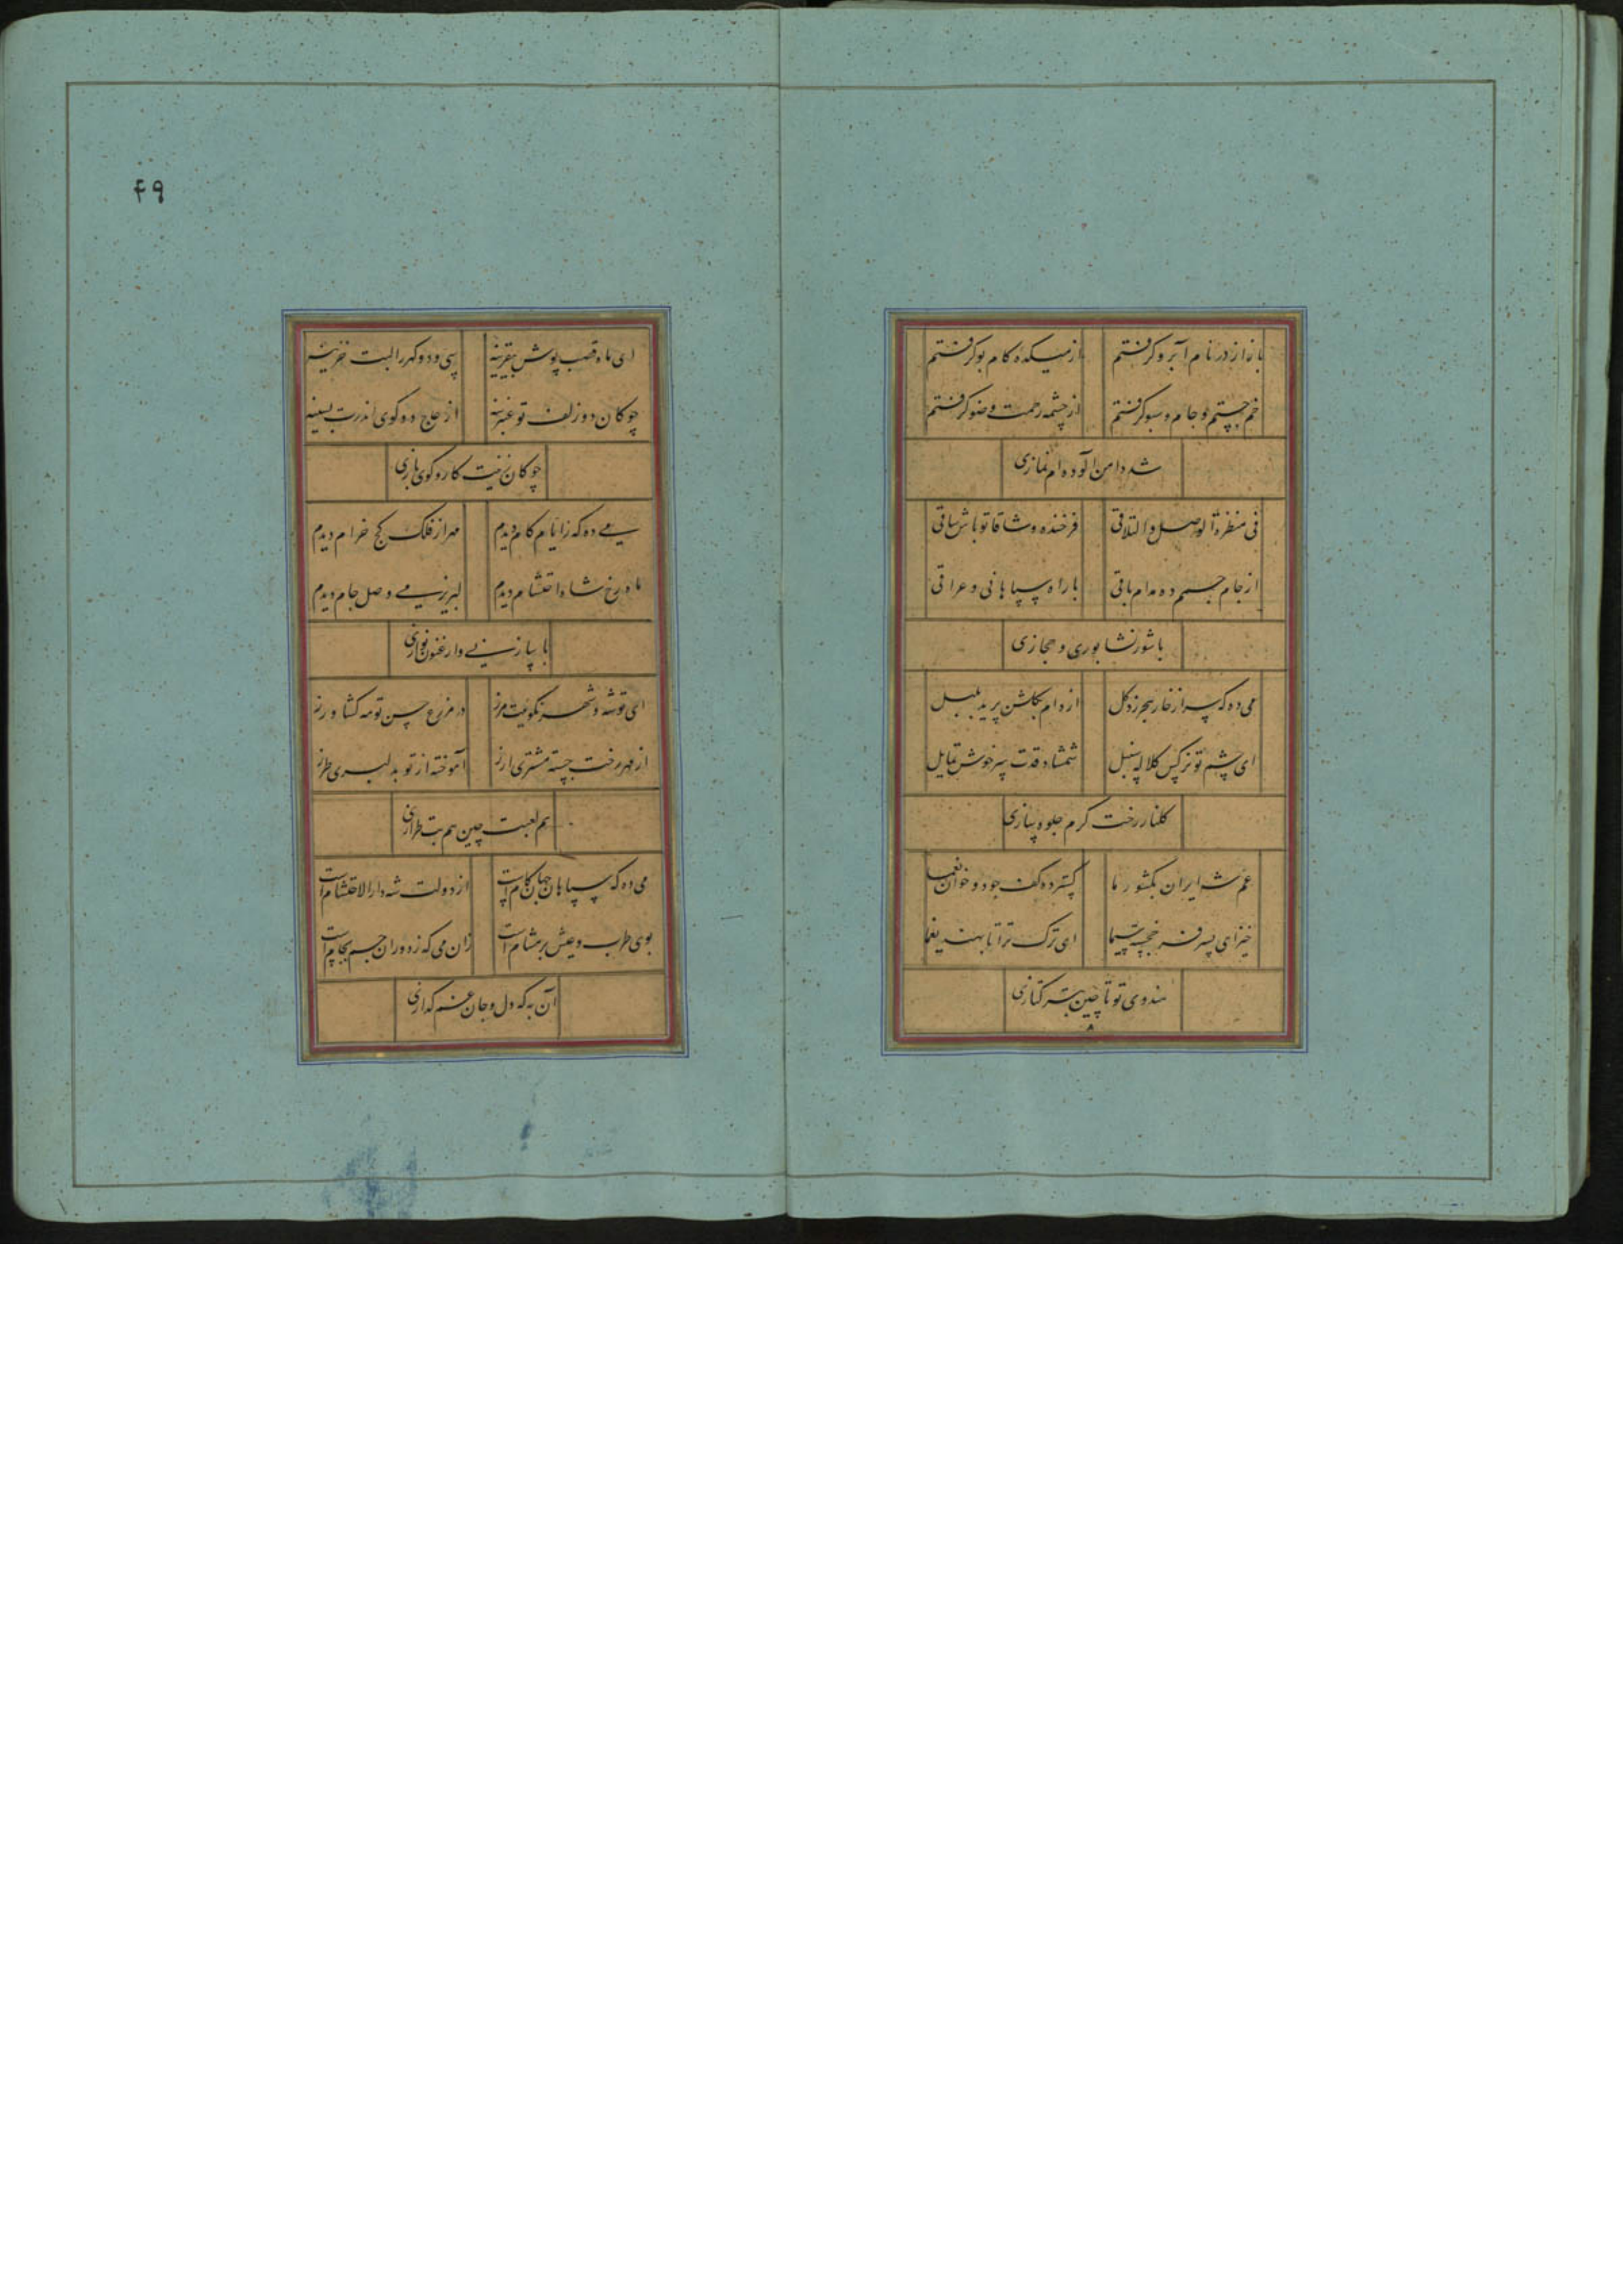 بازار در نام آبرو گرفتم از میکده کام بو گرفتم
خم جستم و جام و سبو گرفتم از چشمه رحمت وضو گرفتم
شد دامن آلوده‌ام نمازی
فی منظرة الوصل و التلاقی فرخنده وشاقا تو باش ساقی
از جام جسم ده مدام باقی با راه سپاهانی و عراقی
با شور نشابوری و حجازی
می ده که سر از خار هجر زد گل از دام بگلشن پرید بلبل
ای چشم تو نرگس کلاله سنبل شمشاد قدت سرخوش تمایل
گلنار رخت گرم جلوه سازی
عم شه ایران بکشور ما گسترده کف جود و خوان نعما
خیز ای پسر فرخجسته سیما ای ترک ترا تا بهند یغما
هندوی تو تا چین بترکتازی
۴۹
ای ماه قصب پوش بیقرینه سی و دو گهر را لبت خزینه
چوکان دو زلف تو عنبرینه از عاج دو گوی اندرت بسینه
چوکان زنیت کار و گوی بازی
می ده که ز ایام کام دیدم مهر از فلک کج خرام دیدم
ماه رخ شاه احتشام دیدم لبریز می وصل جام دیدم
با ساز نی و ارغنون نوازی
ای تو شه و شهر نکوئیت مرز در مزرع حسن تو مه کشاورز
از مهر رخت جسته مشتری ارز آموخته از تو بدلبری طرز
هم لعبت چین هم بت طرازی
می ده که سپاهان جهان بکام است از دولت شه دارالاحتشام است
بوی طرب و عیش بر مشام است زان می که ز دوران جم بجام است
آن به که دل و جان غم گدازی